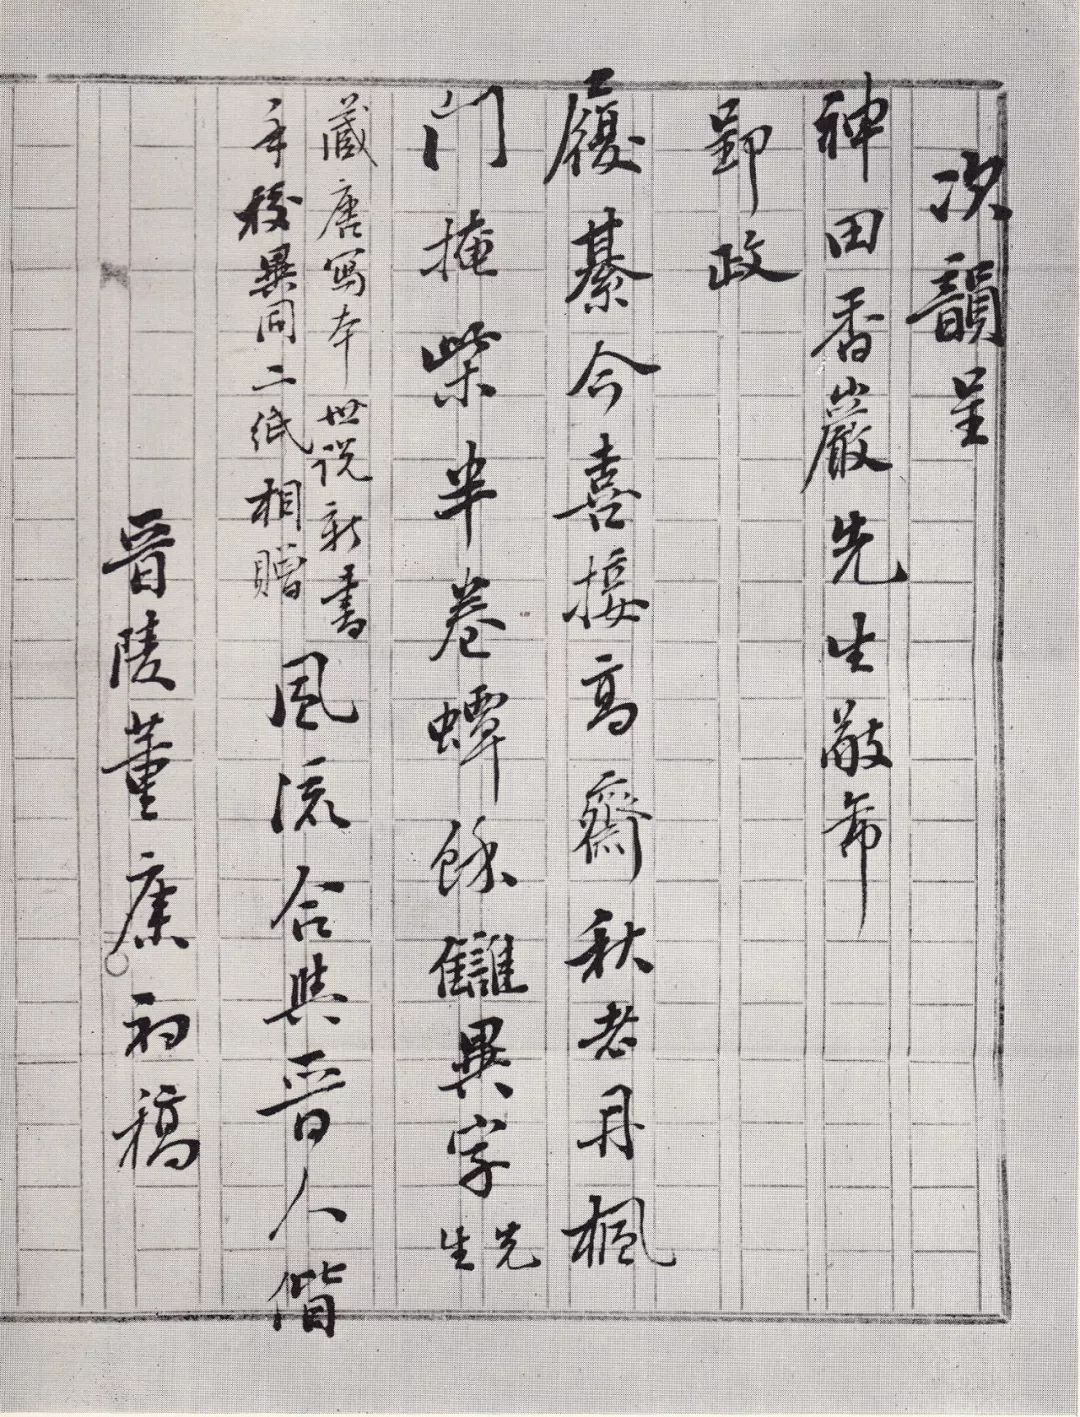 次韻呈
神田香巖先生敬希
郢政
履綦今喜接高齋秋老丹楓
門掩柴半卷蟫餘讎異字先生
藏唐寫本世説新書
手校異同二紙相贈
風流合與晋人偕
晋陵董康初稿